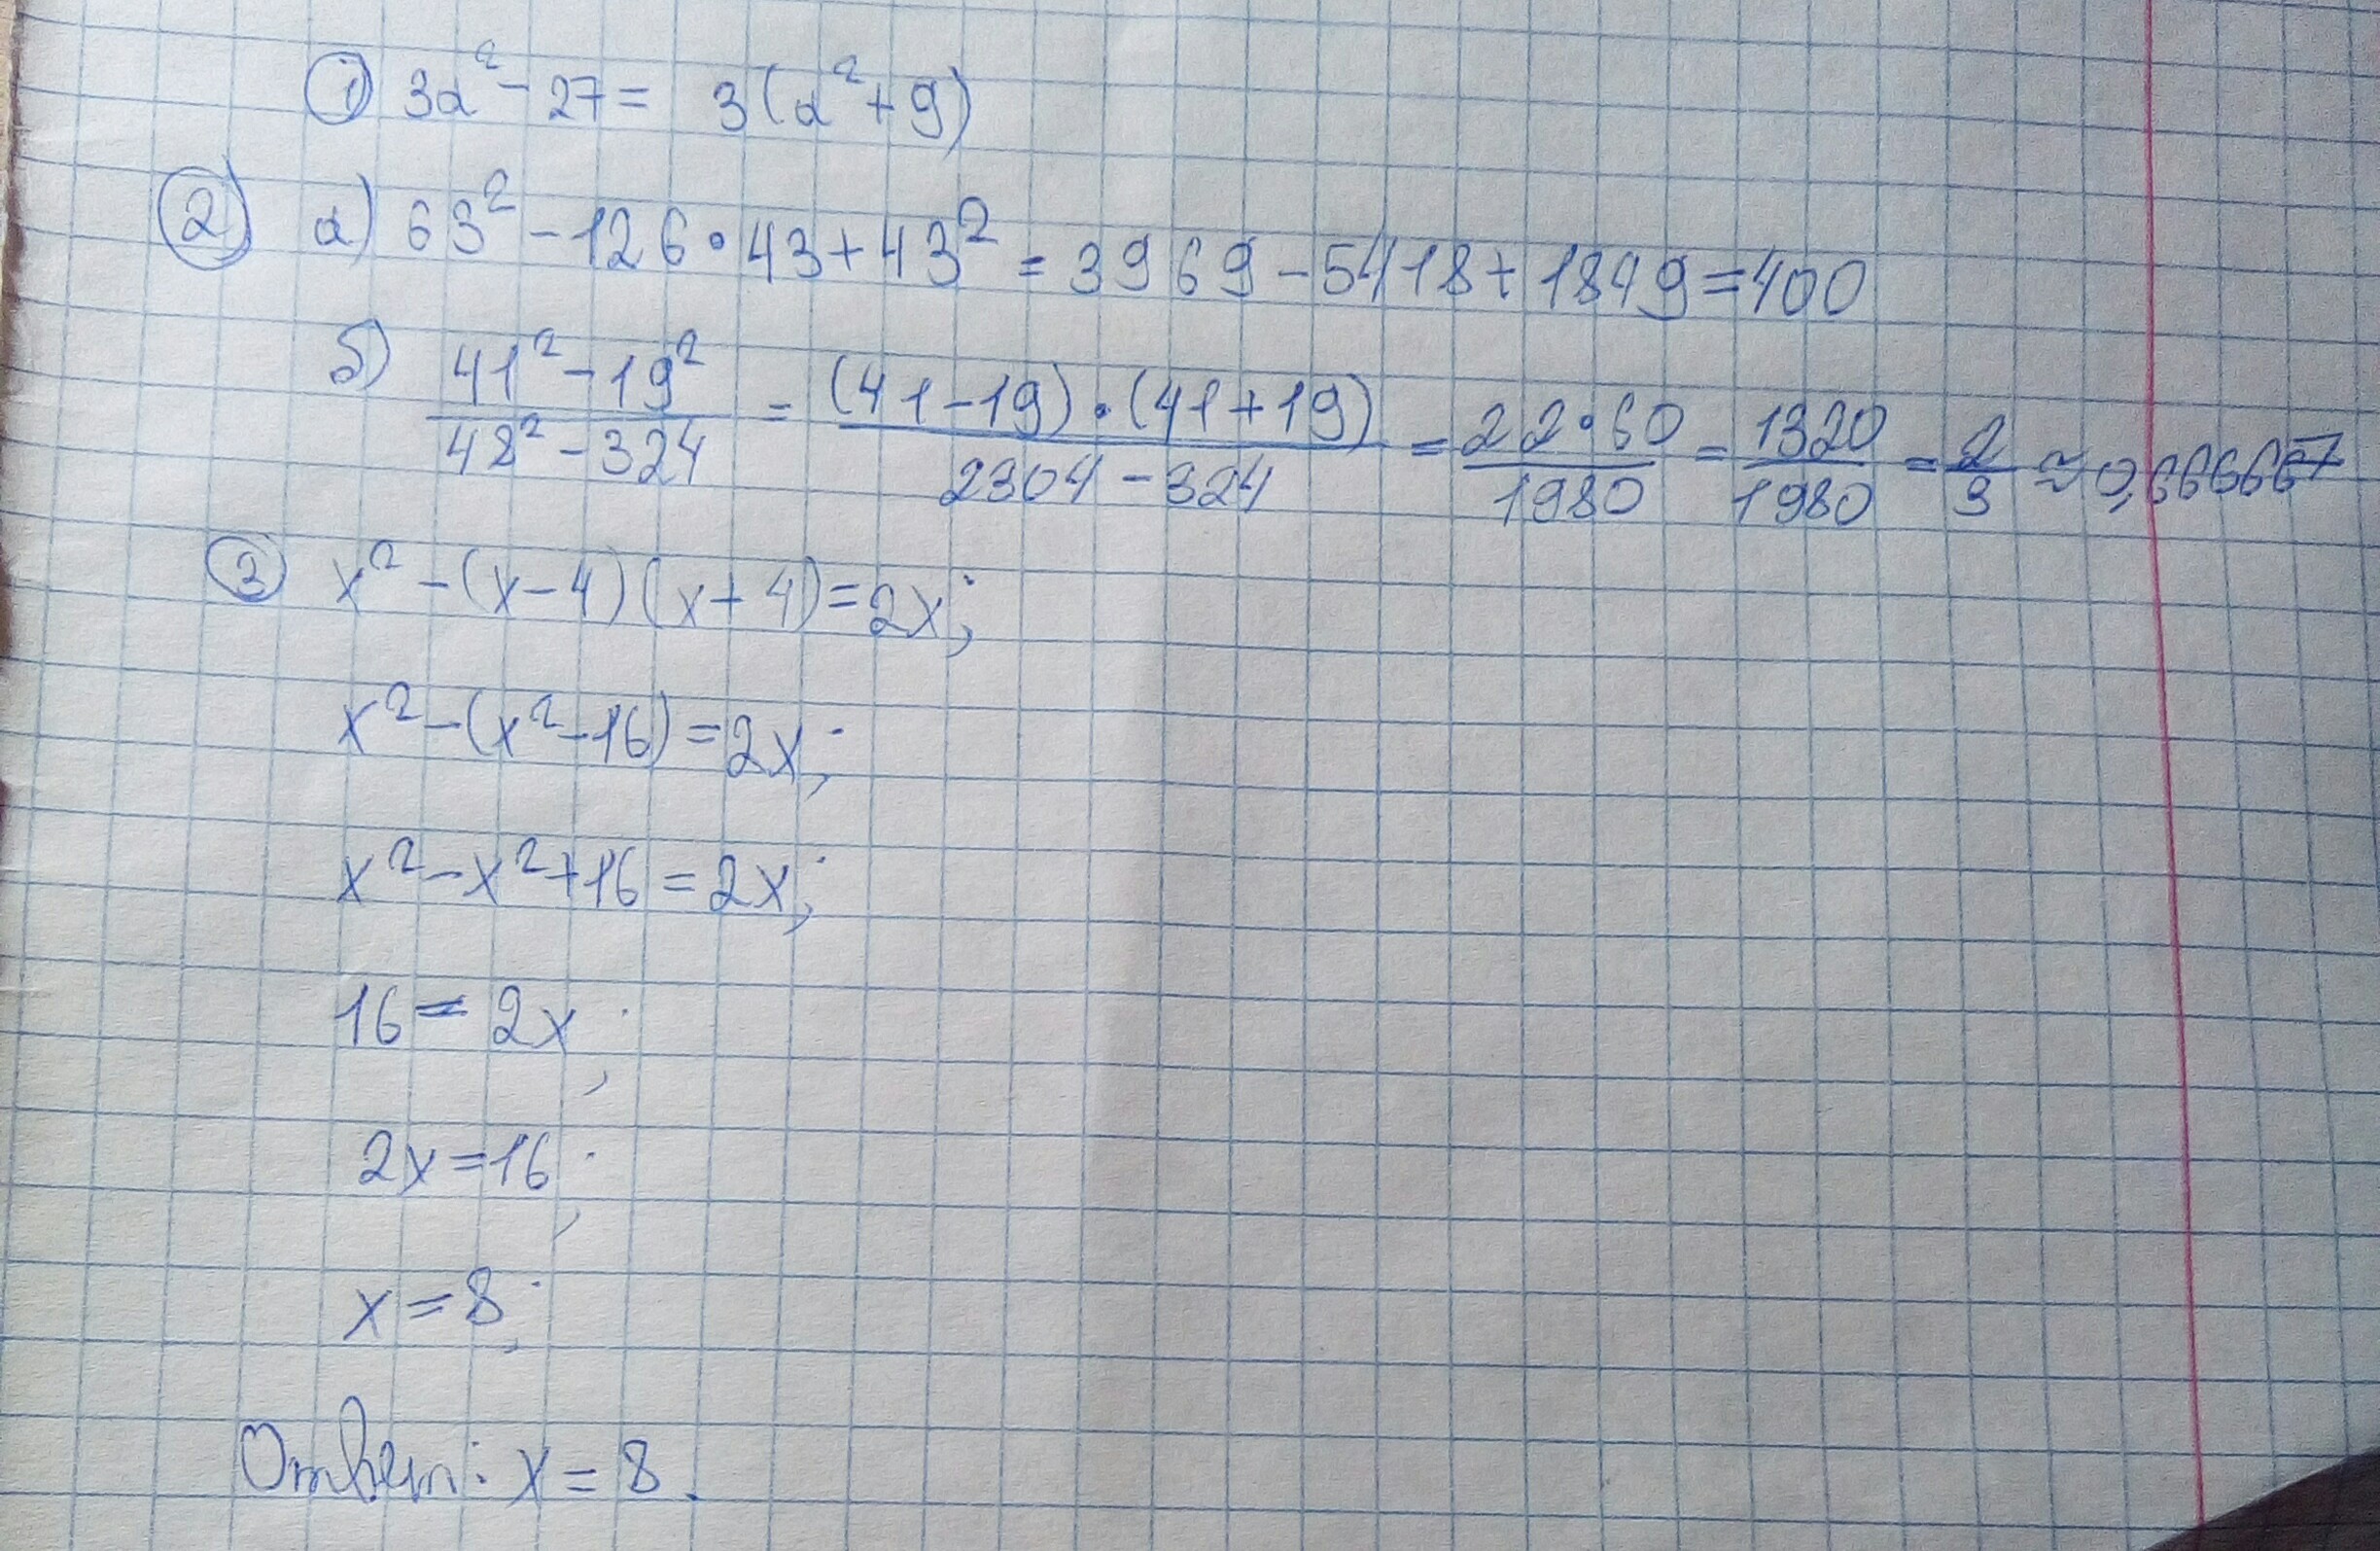 ① 3a² - 27 = 3(a² + 9)
② а) 63² - 126 · 43 + 43² = 3969 - 5418 + 1849 = 400
б) (41² - 19²)/(48² - 324) = ((41 - 19) · (41 + 19))/(2304 - 324) = (22 · 60)/1980 = 1320/1980 = 2/3 ≈ 0,666667
③ x² - (x - 4)(x + 4) = 2x;
x² - (x² - 16) = 2x;
x² - x² + 16 = 2x;
16 = 2x;
2x = 16;
x = 8;
Ответ: x = 8.